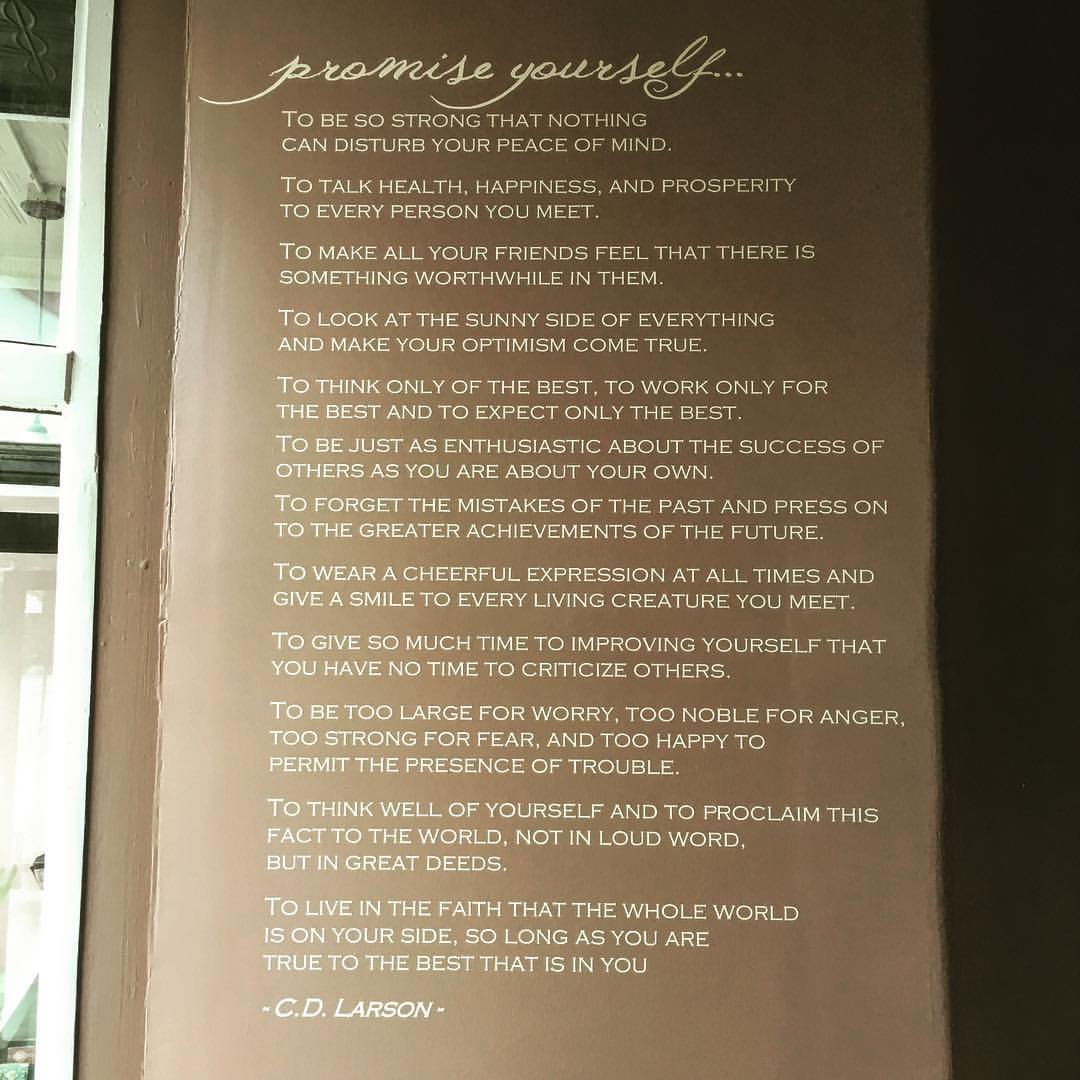 promise yourself...
To be so strong that nothing
can disturb your peace of mind.
To talk health, happiness, and prosperity
to every person you meet.
To make all your friends feel that there is
something worthwhile in them.
To look at the sunny side of everything
and make your optimism come true.
To think only of the best, to work only for
the best and to expect only the best.
To be just as enthusiastic about the success of
others as you are about your own.
To forget the mistakes of the past and press on
to the greater achievements of the future.
To wear a cheerful expression at all times and
give a smile to every living creature you meet.
To give so much time to improving yourself that
you have no time to criticize others.
To be too large for worry, too noble for anger,
too strong for fear, and too happy to
permit the presence of trouble.
To think well of yourself and to proclaim this
fact to the world, not in loud word,
but in great deeds.
To live in the faith that the whole world
is on your side, so long as you are
true to the best that is in you
- C.D. Larson -